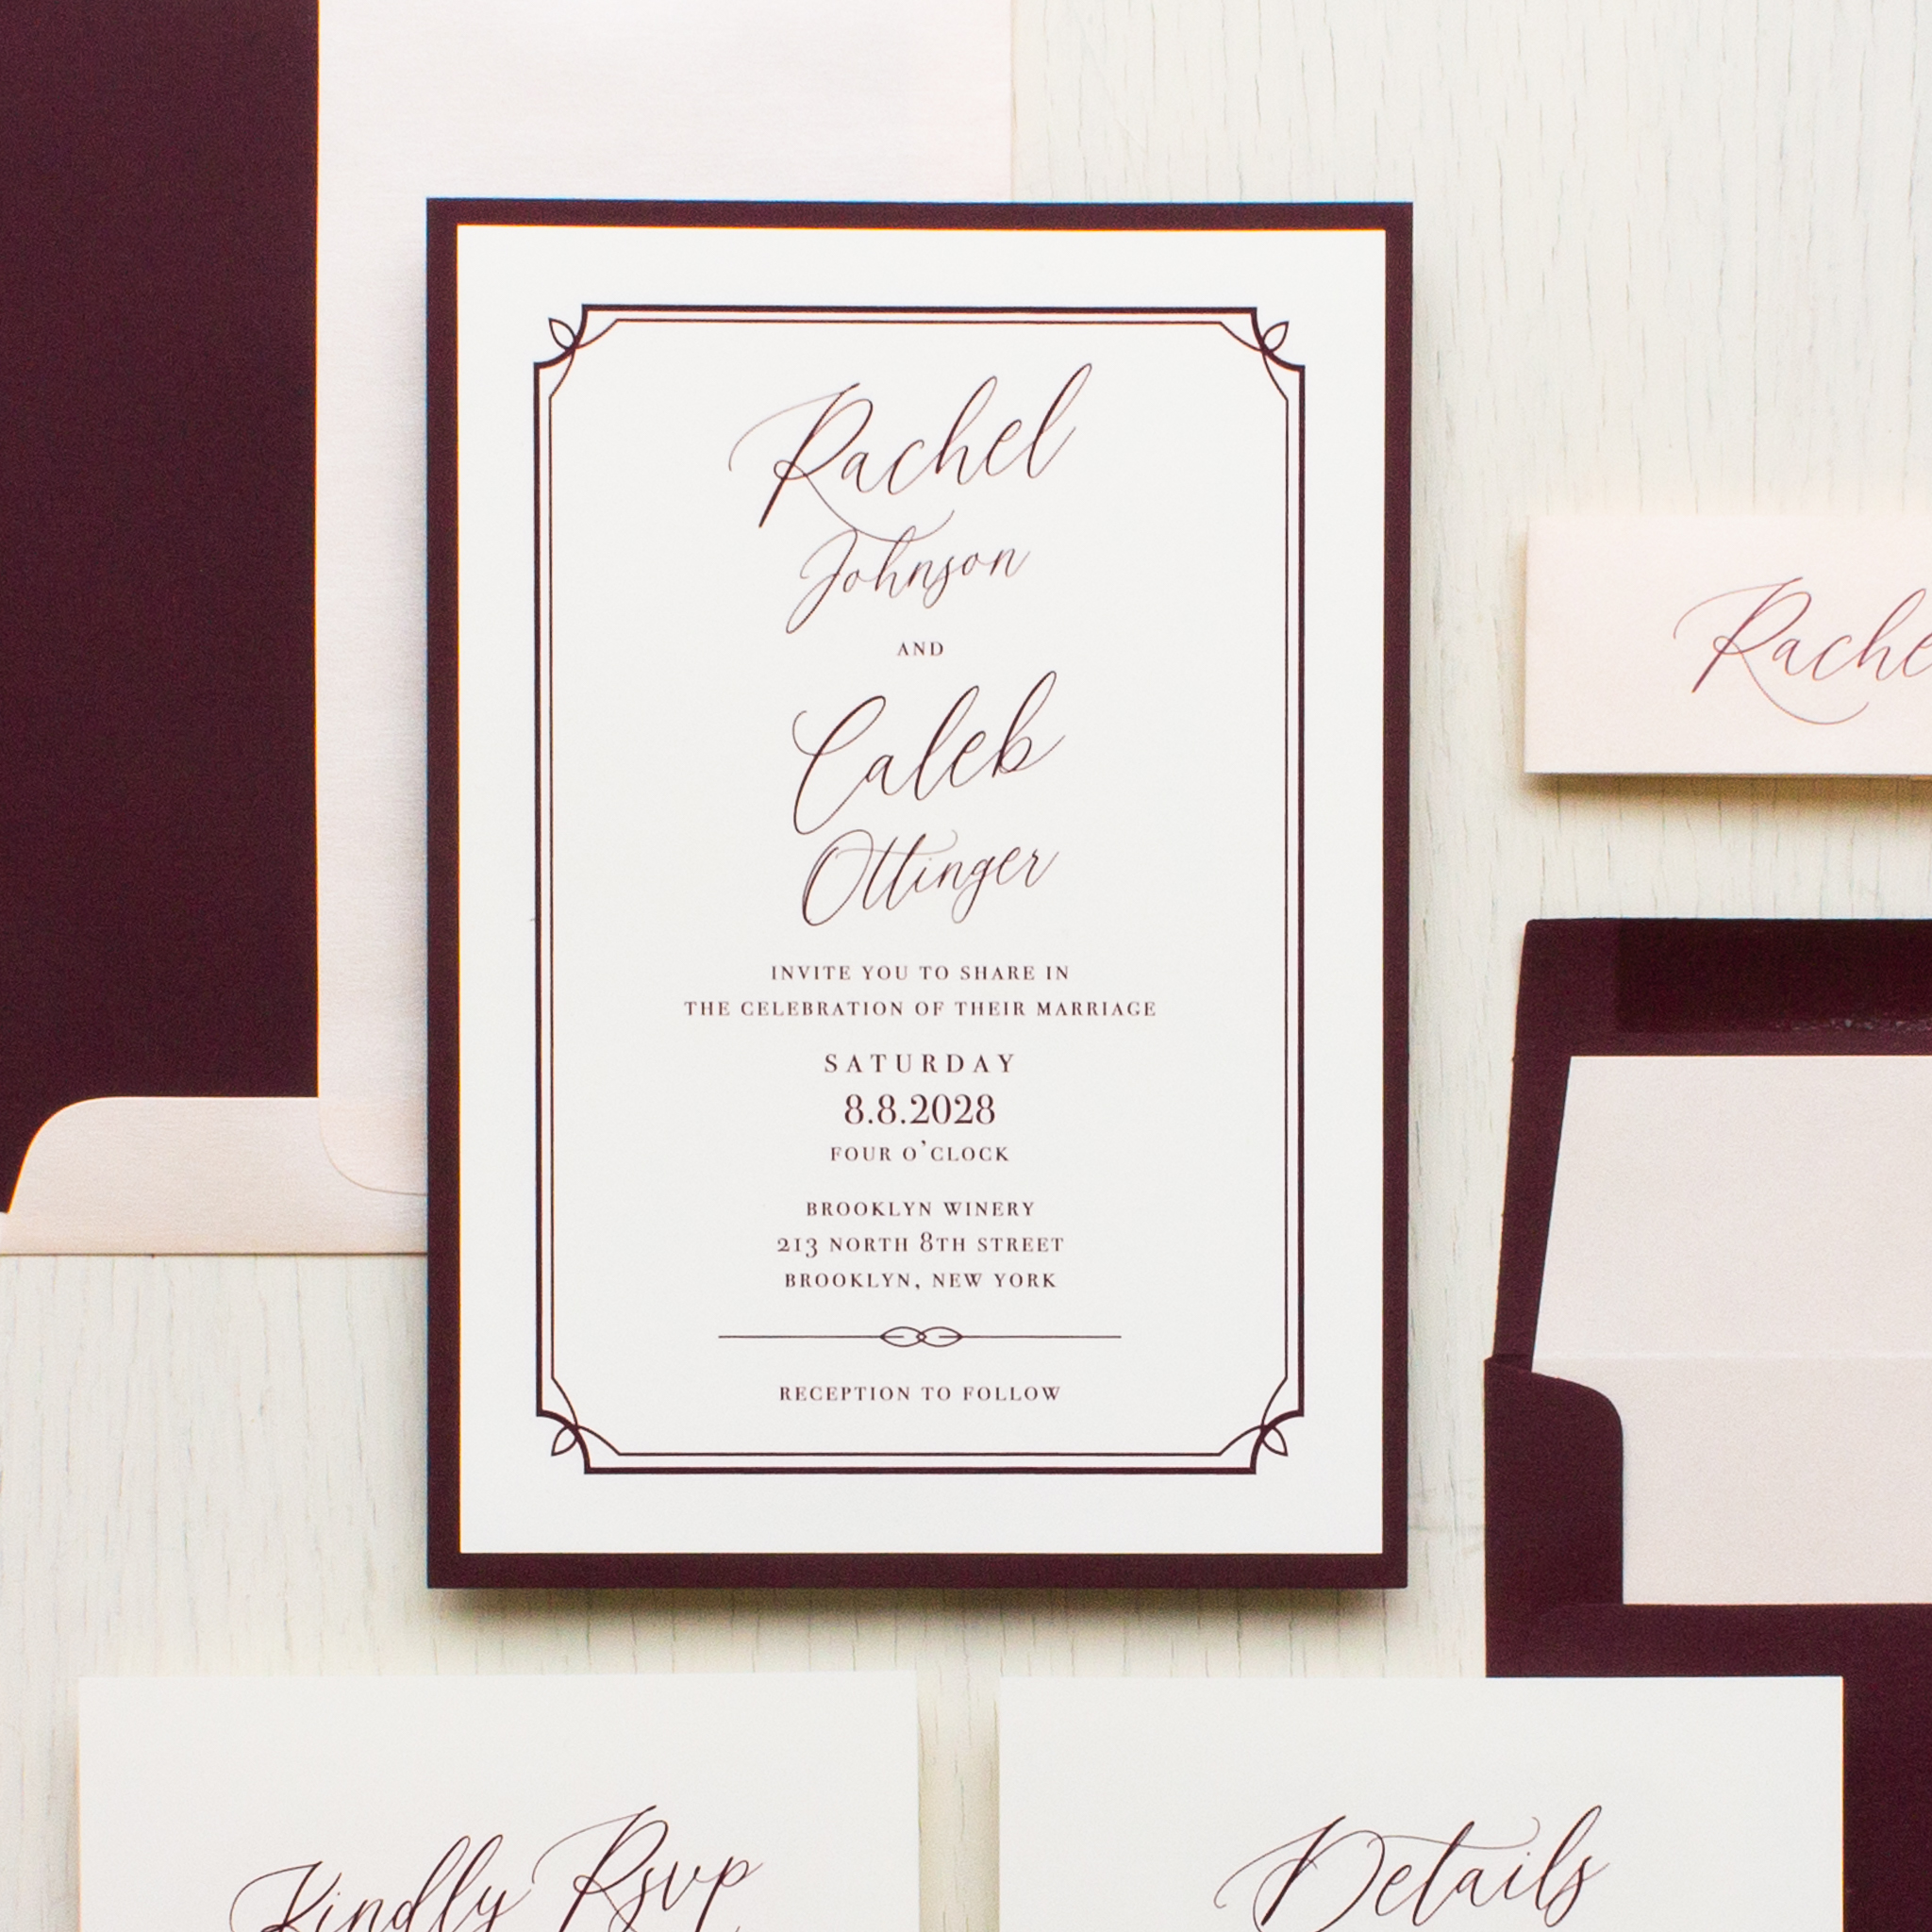 Rachel
Johnson
AND
Caleb
Ottinger
INVITE YOU TO SHARE IN
THE CELEBRATION OF THEIR MARRIAGE
SATURDAY
8.8.2028
FOUR O'CLOCK
BROOKLYN WINERY
213 NORTH 8TH STREET
BROOKLYN, NEW YORK
RECEPTION TO FOLLOW
Rache
Kindly Rsvp
Details